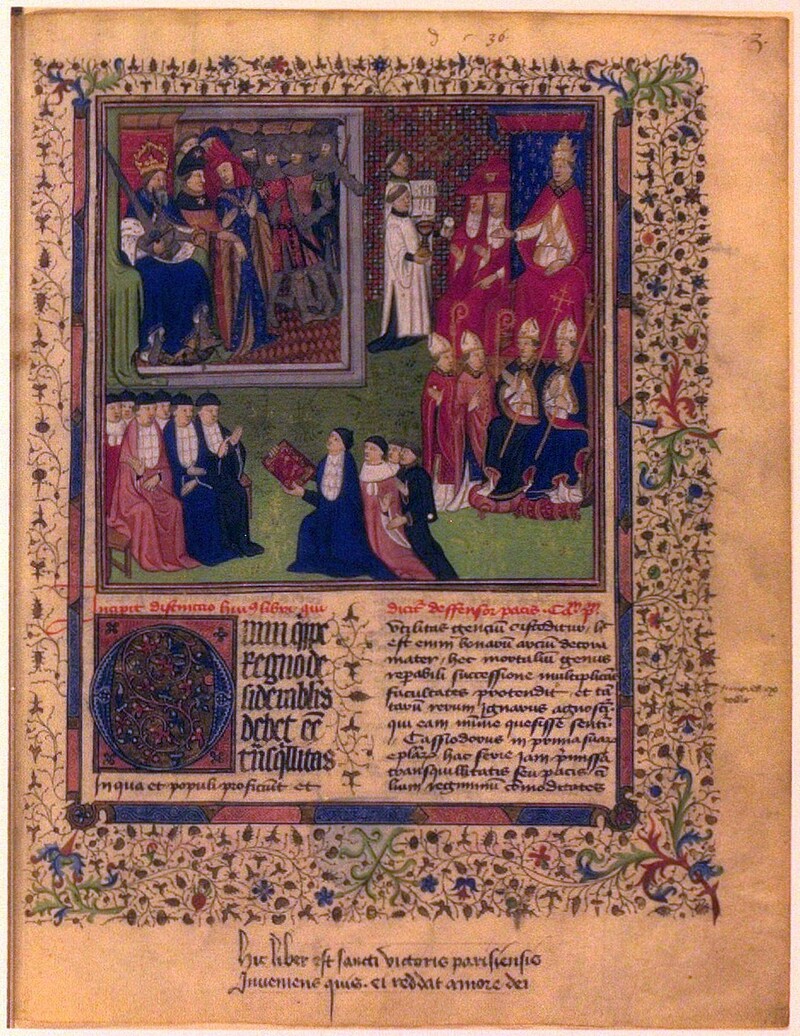 36
3
Incipit distinctio hui9 libri qui
dicit deffensor pacis
Omni qippe
Regno de
siderabilis
debet ee
tnsqillitas
In qua et populi proficiunt et
Utilitas gencium custoditur, h
est enim bonarum arcium decora
mater, hec mortaliu genus
repabili successione multiplicas
facultates protendit, et
rerum ignarus agnosci
qui eam minime quesisse senti
Cassiodorus in prima suarum
eplarum hac serie iam pmissa
transquillitatis seu pacis
regiminum comoditates
Hic liber est sancti victoris parisiensis
Inveniens quis. ei reddat amore dei